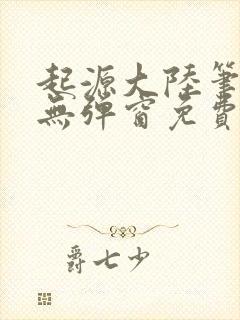 起源大陸筆
無彈窗免費
爵七少